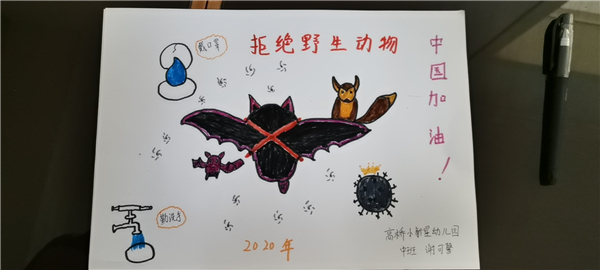 拒绝野生动物
中国加油！
戴口罩
勤洗手
2020年
高桥小射星幼儿园
中班 谢可馨